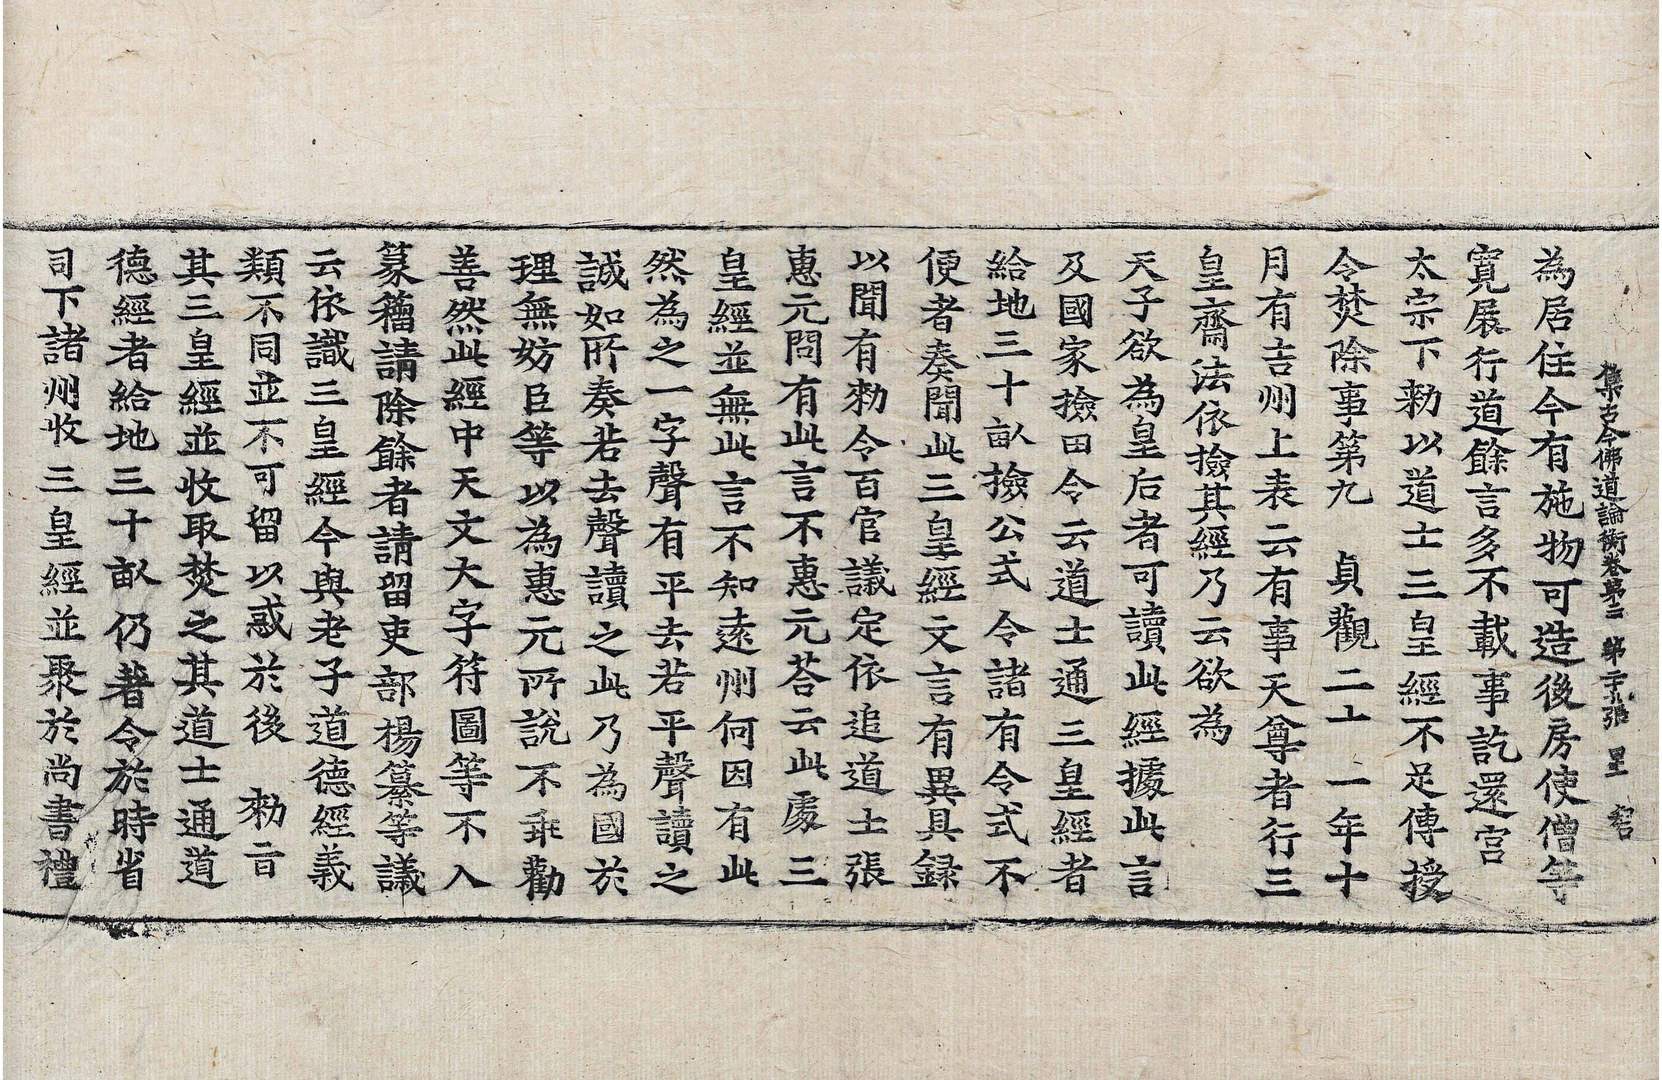 集古今佛道論衡卷第三 第二十九張 星
為居住今有施物可造後房使僧等
寬展行道餘言多不載事訖還宮
太宗下勑以道士三皇經不足傳授
令焚除事第九 貞觀二十一年十
月有吉州上表云有事天尊者行三
皇齋法依撿其經乃云欲為
天子欲為皇后者可讀此經據此言
及國家撿田令云道士通三皇經者
給地三十畝撿公式令諸有令式不
便者奏聞此三皇經文言有異具録
以聞有勑令百官議定依追道士張
惠元問有此言不惠元荅云此處三
皇經並無此言不知遠州何因有此
然為之一字聲有平去若平聲讀之
誠如所奏若去聲讀之此乃為國於
理無妨臣等以為惠元所說不乖勸
善然此經中天文大字符圖等不入
篆籀請除餘者請留吏部楊纂等議
云依識三皇經今與老子道德經義
類不同並不可留以惑於後 勑旨
其三皇經並收取焚之其道士通道
德經者給地三十畝仍著令於時省
司下諸州收三皇經並聚於尚書禮